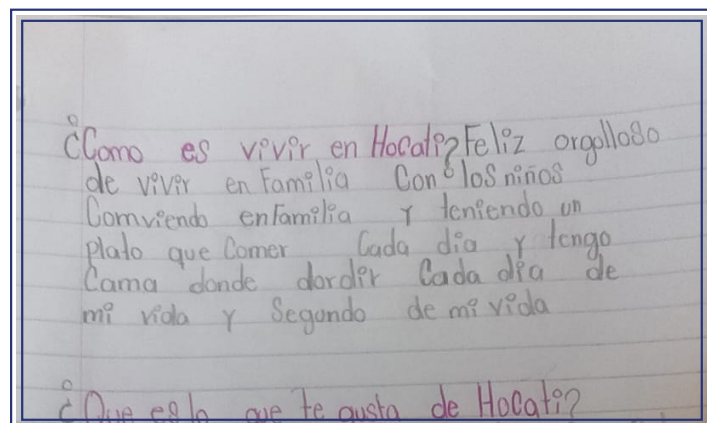 ¿Como es vivir en Hocati? Feliz orgolloso
de vivir en Familia Con los niños
Comviendo enFamilia Y teniendo un
plato que Comer Cada dia Y tengo
Cama donde dordir Cada dia de
mi vida Y Segundo de mi vida
¿Que es lo que te gusta de Hocati?